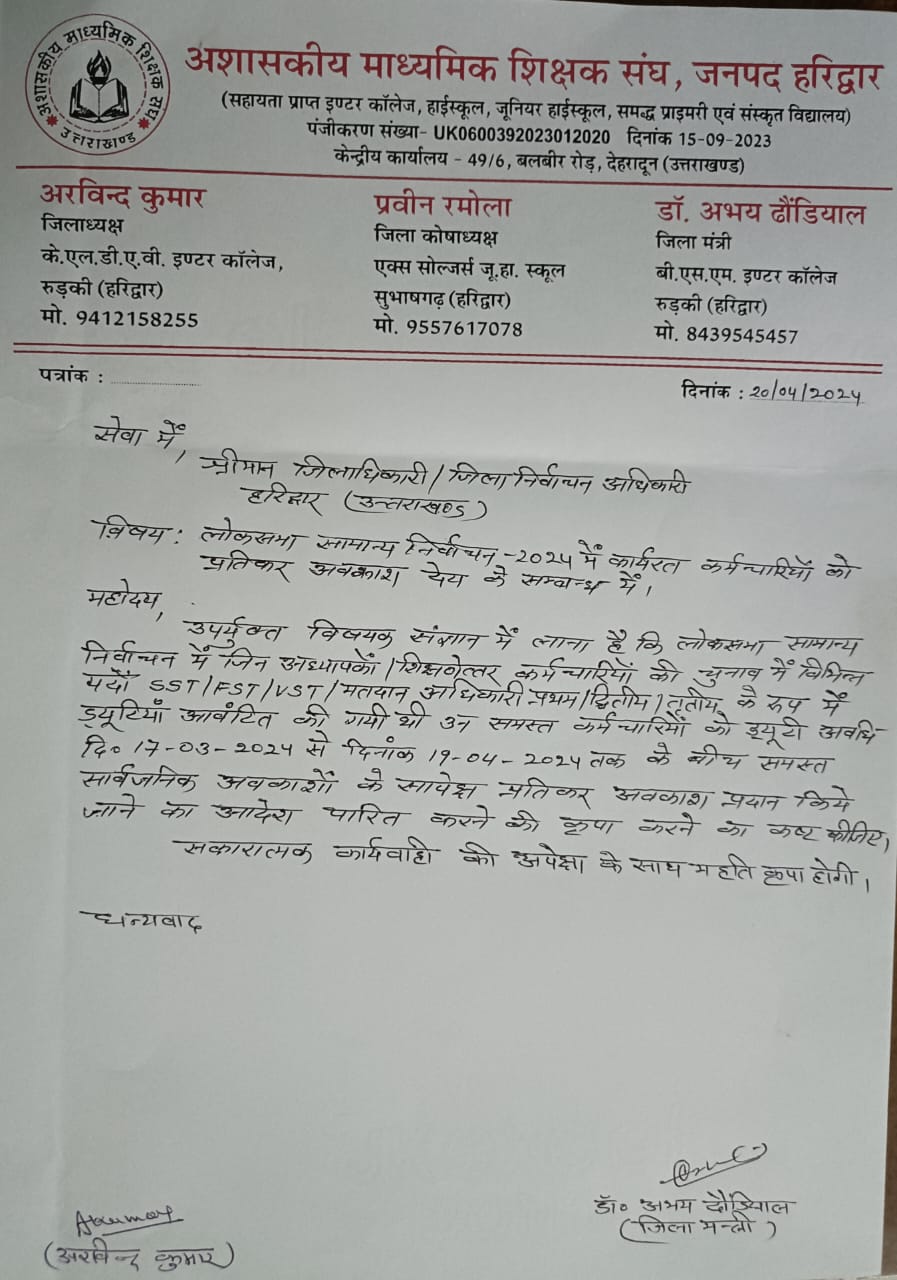 अशासकीय माध्यमिक शिक्षक संघ
उत्तराखण्ड
अशासकीय माध्यमिक शिक्षक संघ, जनपद हरिद्वार
(सहायता प्राप्त इण्टर कॉलेज, हाईस्कूल, जूनियर हाईस्कूल, सम्बद्ध प्राइमरी एवं संस्कृत विद्यालय)
पंजीकरण संख्या- UK0600392023012020 दिनांक 15-09-2023
केन्द्रीय कार्यालय - 49/6, बलबीर रोड़, देहरादून (उत्तराखण्ड)
अरविन्द कुमार
जिलाध्यक्ष
के.एल.डी.ए.वी. इण्टर कॉलेज,
रुड़की (हरिद्वार)
मो. 9412158255
प्रवीन रमोला
जिला कोषाध्यक्ष
एक्स सोल्जर्स जू.हा. स्कूल
सुभाषगढ़ (हरिद्वार)
मो. 9557617078
डॉ. अभय ढौंडियाल
जिला मंत्री
बी.एस.एम. इण्टर कॉलेज
रुड़की (हरिद्वार)
मो. 8439545457
पत्रांक : ....................
दिनांक : 20/04/2024
सेवा में,
श्रीमान जिलाधिकारी/जिला निर्वाचन अधिकारी
हरिद्वार (उत्तराखण्ड)
विषय: लोकसभा सामान्य निर्वाचन-2024 में कार्यरत कर्मचारियों को
प्रतिकर अवकाश देय के सम्बन्ध में।
महोदय,
उपर्युक्त विषयक संज्ञान में लाना है कि लोकसभा सामान्य
निर्वाचन में जिन अध्यापकों/शिक्षणेत्तर कर्मचारियों की चुनाव में विभिन्न
पदों SST/FST/VST/मतदान अधिकारी प्रथम/द्वितीय/तृतीय के रुप में
ड्यूटियाँ आवंटित की गयी थी उन समस्त कर्मचारियों को ड्यूटी अवधि
दि० 17-03-2024 से दिनांक 19-04-2024 तक के बीच समस्त
सार्वजनिक अवकाशों के सापेक्ष प्रतिकर अवकाश प्रदान किये
जाने का आदेश पारित करने की कृपा करने का कष्ट कीजिए,
सकारात्मक कार्यवाही की अपेक्षा के साथ महति कृपा होगी।
धन्यवाद
डॉ० अभय ढौंडियाल
(जिला मन्त्री)
(अरविन्द कुमार)